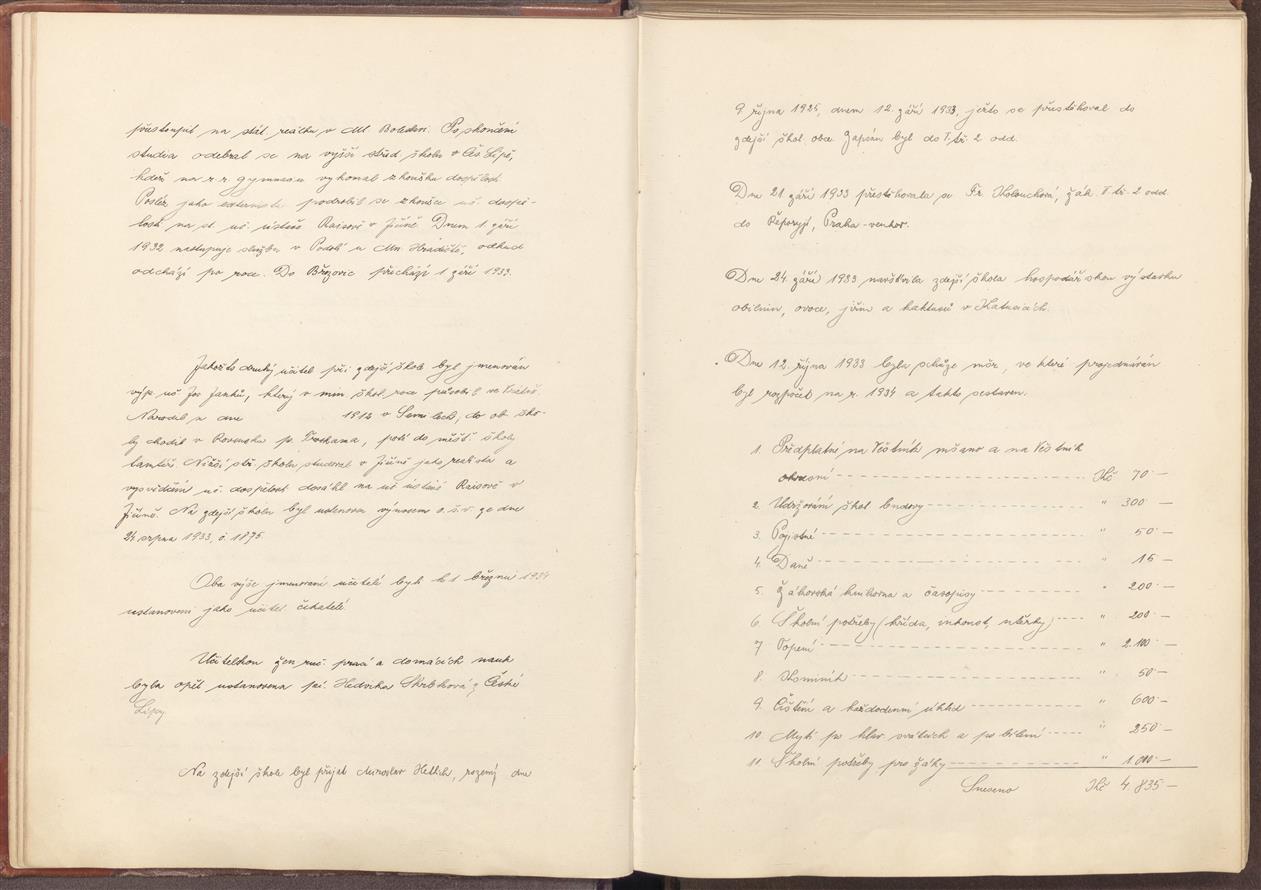 přestoupil na stát. reálku v Ml. Boleslavi. Po skončení
studia odebral se na vyšší střed. školu v Čes. Lípě,
kdež na r. r. gymnasiu vykonal zkoušku dospělosti.
Později jako externista podrobil se zkoušce uč. dospě-
losti na st. uč. ústavě Raisově v Jičíně. Dnem 1. září
1932 nastupuje službu v Podolí u Mn. Hradiště, odkud
odchází po roce. Do Březovic přichází 1. září 1933.
Jakožto druhý učitel při zdejší škole byl jmenován
výp. uč. Jos. Janků, který v min. škol. roce působil ve
Narodil se dne 1912 v Semilech, do ob. ško-
ly chodil v Rovensku p. Troskama, poté do měšť. školy
tamtéž. Nižší stř. školu studoval v Jičíně jako realista a
vysvědčení uč. dospělosti dosáhl na uč. ústavě Raisově v
Jičíně. Na zdejší školu byl ustanoven výnosem o. š. v. ze dne
24. srpna 1933, č. 1875.
Oba výše jmenovaní učitelé byli k 1. březnu 1934
ustanoveni jako učitel. čekatelé.
Učitelkou žen. ruč. prací a domácích nauk
byla opět ustanovena pí. Hedvika Skřibková z České
Lípy
Na zdejší škole byl přijat Miroslav Hetlich, rozený dne
9. října 1925, dnem 12. září 1933, ježto se přestěhoval do
zdejší škol. obce. Zapsán byl do I. tř. 2 odd.
Dne 21. září 1933 přestěhovala se Fr. Kolouchová, žák. I. tř. 2 odd.
do Řeporyjí, Praha-venkov.
Dne 24. září 1933 navštívila zdejší škola hospodářskou výstavku
obilnin, ovoce, jiřin a kaktusů v Katusicích.
Dne 12. října 1933 byla schůze mšr, ve které projednáván
byl rozpočet na r. 1934 a takto sestaven:
1. Předplatné na Věstník mšano a na Věstník
okresní Kč 70 —
2. Udržování škol. budovy " 300 —
3. Pojistné " 50 —
4. Daně " 15 —
5. Žákovská knihovna a časopisy " 200 —
6. Školní potřeby (křída, inkoust, utěrky) " 200 —
7. Topení " 2.100 —
8. Kominík " 50 —
9. Čištění a každodenní úklid " 600 —
10. Mytí po hlav. svátcích a po bílení " 250 —
11. Školní potřeby pro žáky " 1.000 —
Sneseno Kč 4.835 —